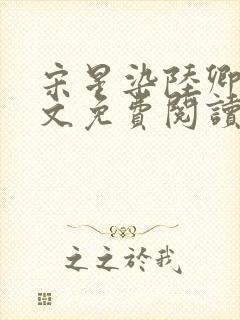 宋星染陸卿
文免費閱讀
之之於我